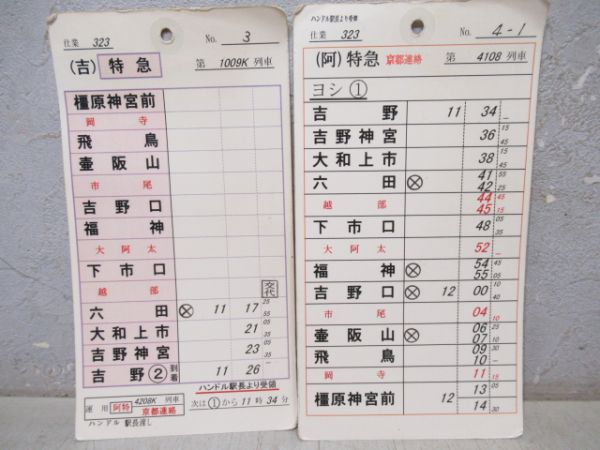 仕業 323 No. 3
(吉) 特急 第 1009K 列車
橿原神宮前
岡寺
飛鳥
壷阪山
市尾
吉野口
福神
大阿太
下市口
越部 交代
六田 ⊗ 11 17 25 55
大和上市 21 05 35
吉野神宮 23 05 35
吉野 ② 到着 11 26 —
ハンドル駅長より受領
運用 阿特 4208K 列車 京都連絡 次は①から11時34分
ハンドル 駅長渡し
ハンドル駅長より受領
仕業 323 No. 4-1
(阿) 特急 京都連絡 第 4108 列車
ヨシ ①
吉野 11 34 —
吉野神宮 36 15 45
大和上市 38 15 45
六田 ⊗ 41 42 55 25
越部 44 45 45 15
下市口 48 05 35
大阿太 52 —
福神 ⊗ 54 55 45 05
吉野口 ⊗ 12 00 10 40
市尾 04 10
壷阪山 ⊗ 06 07 25 10
飛鳥 09 10 30 —
岡寺 11 15
橿原神宮前 12 13 14 05 30